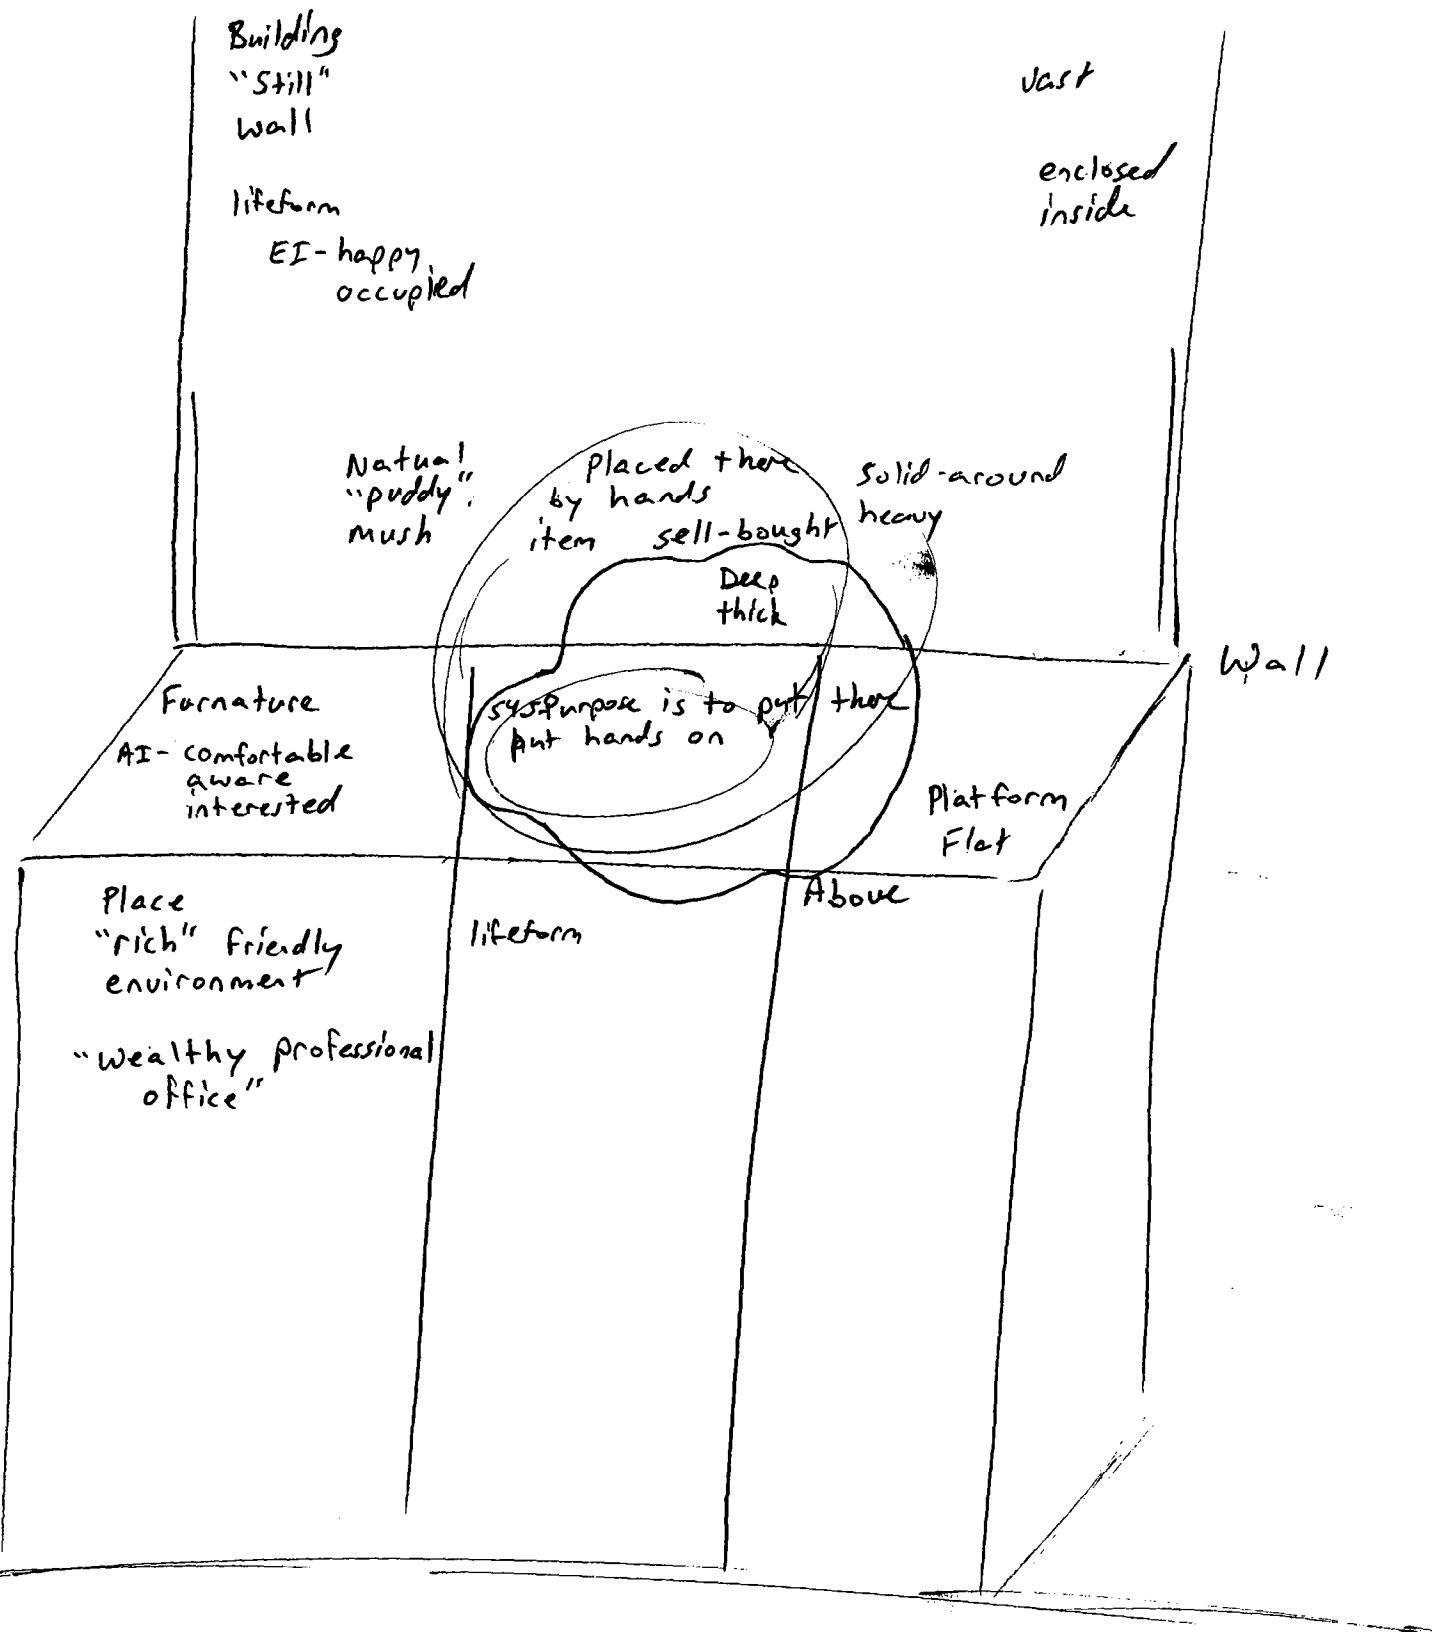 Building
"Still"
wall
lifeform
EI-happy
occupied
vast
enclosed
inside
Natual
"puddy"
mush
Placed there
by hands
item sell-bought
Solid-around
heavy
Deep
thick
Wall
Furnature
AI-comfortable
aware
interested
Purpose is to put there
put hands on
Platform
Flat
Above
Place
"rich" friendly
environment
lifeform
"wealthy professional
office"